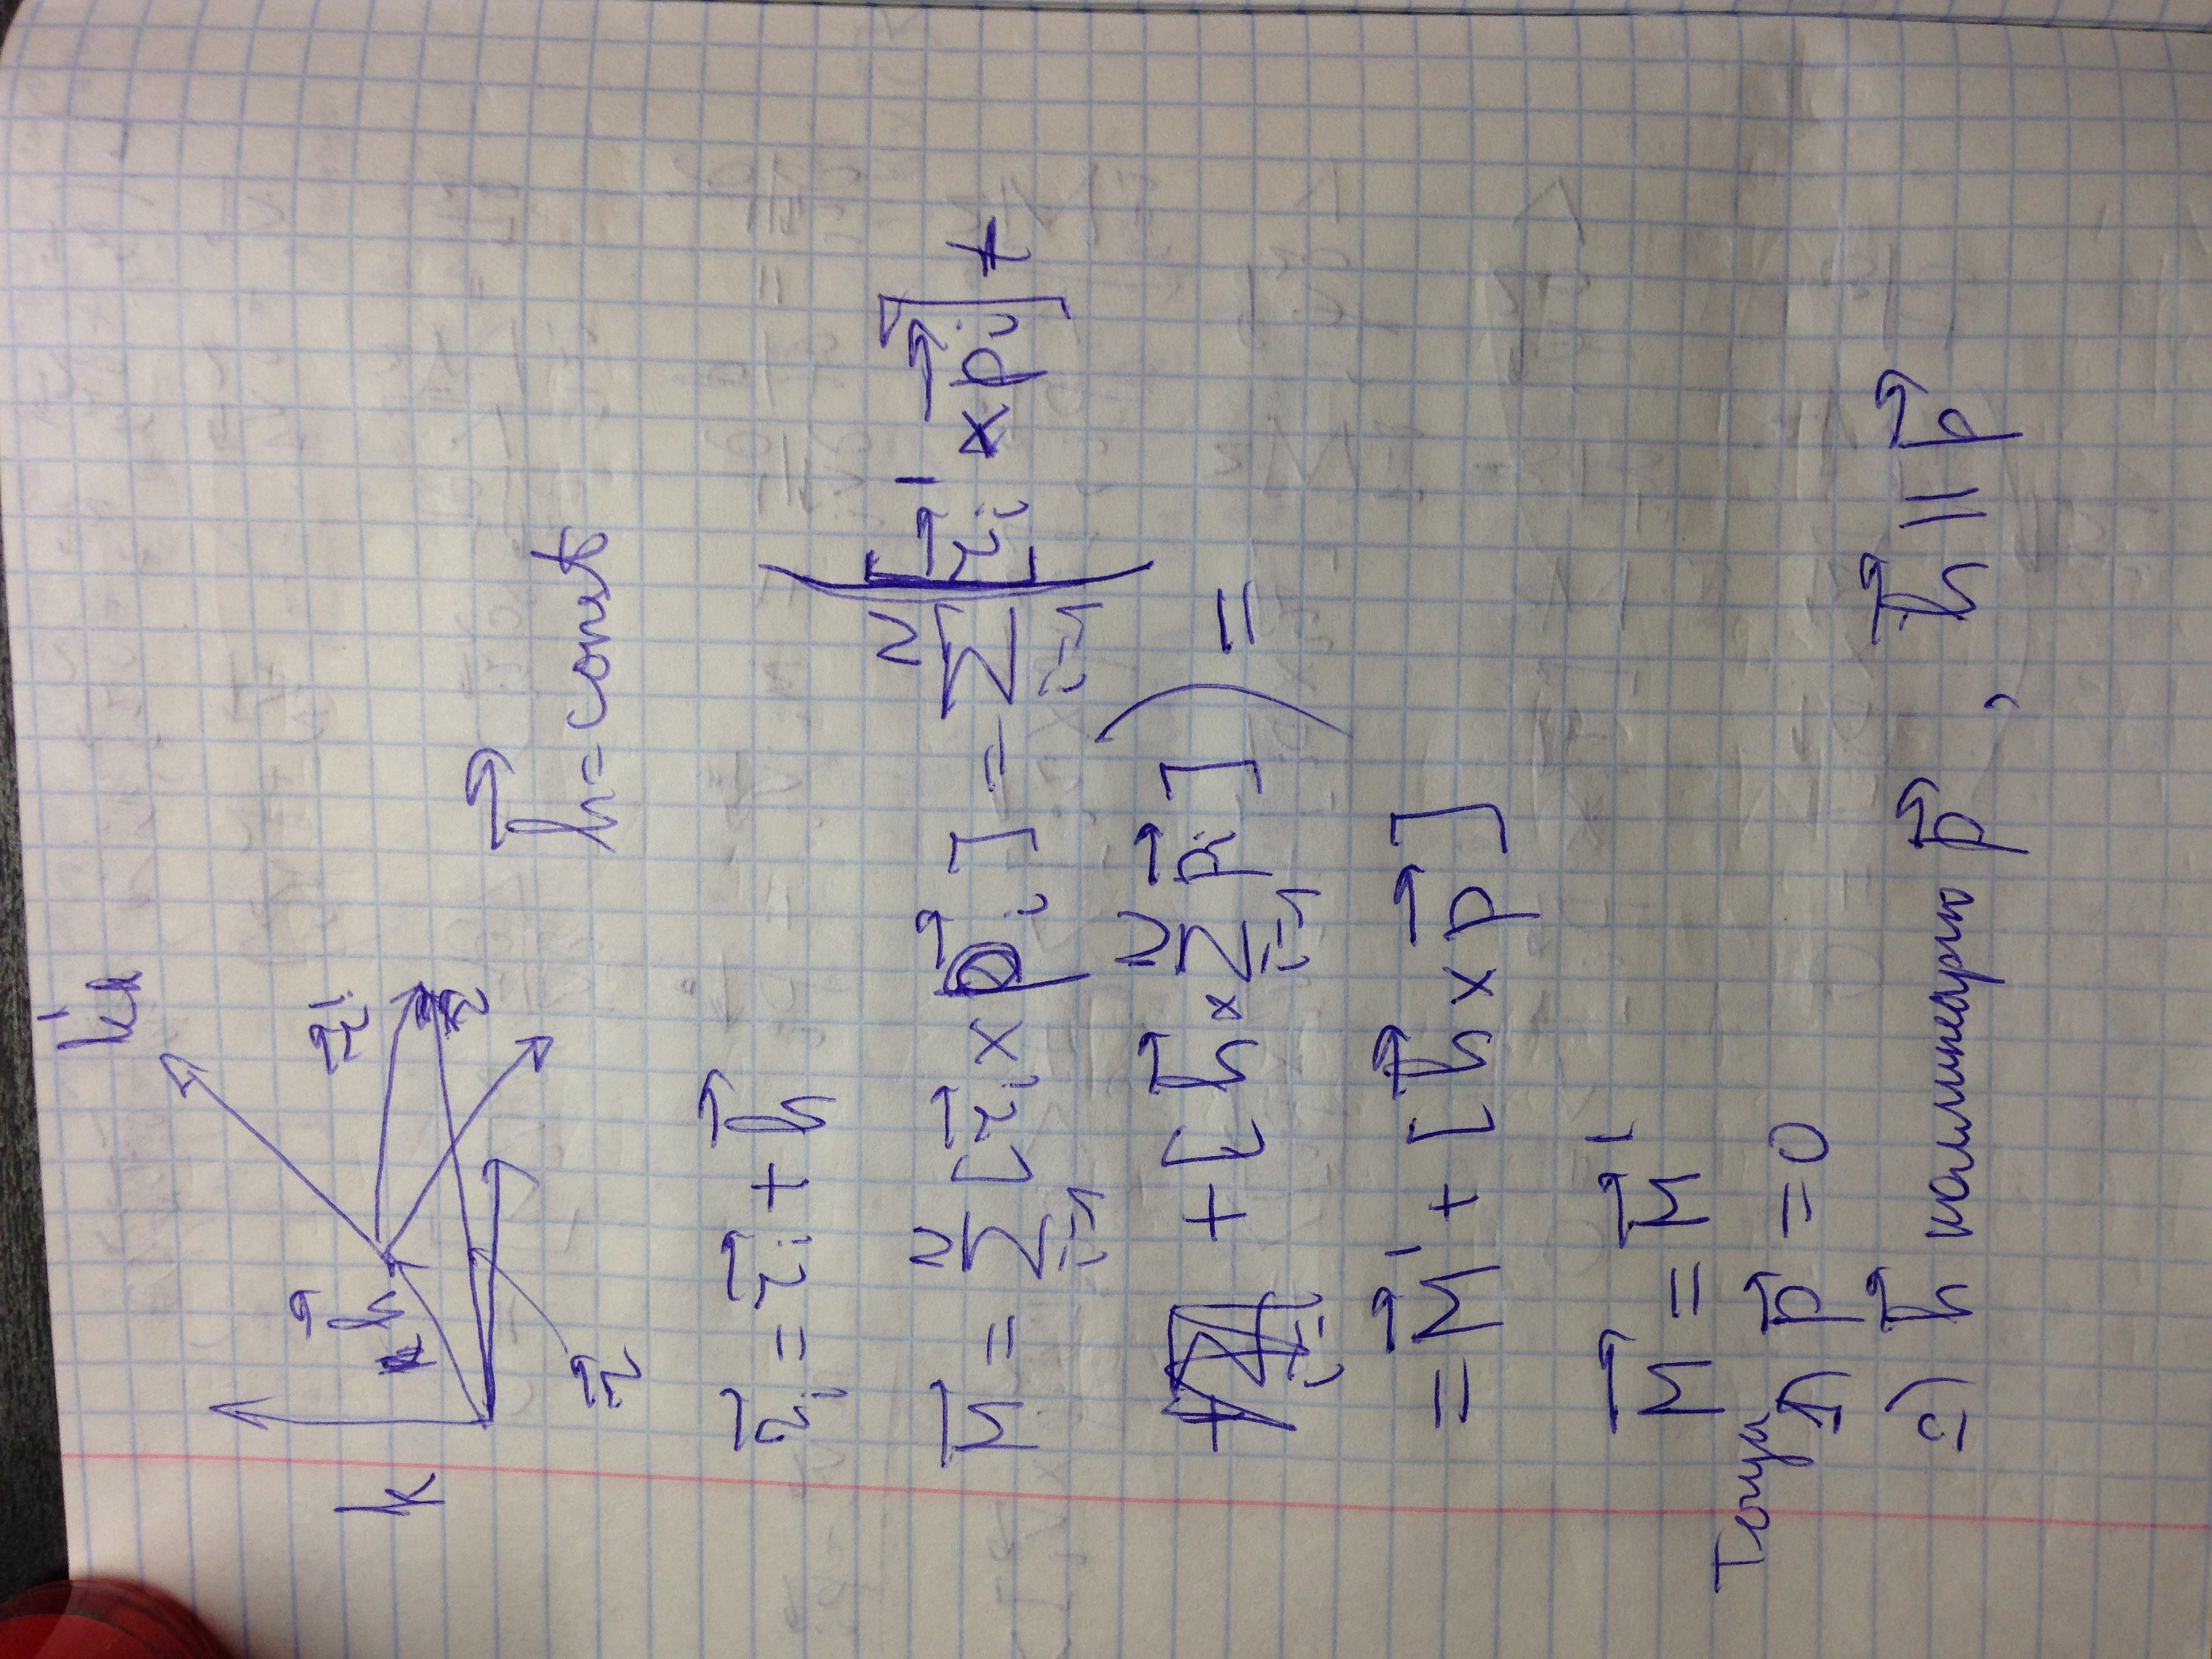 k'
k
h⃗
r⃗'
r⃗
h⃗ = const
r⃗ᵢ = r⃗ᵢ' + h⃗
M⃗ = Σᵢ₌₁ᴺ [r⃗ᵢ × p⃗ᵢ] = Σᵢ₌₁ᴺ ([r⃗ᵢ' × p⃗ᵢ] +
+ [h⃗ × Σᵢ₌₁ᴺ p⃗ᵢ]) =
= M⃗' + [h⃗ × p⃗]
M⃗ = M⃗'
1) p⃗ = 0
2) h⃗ коллинеарно p⃗, h⃗ || p⃗